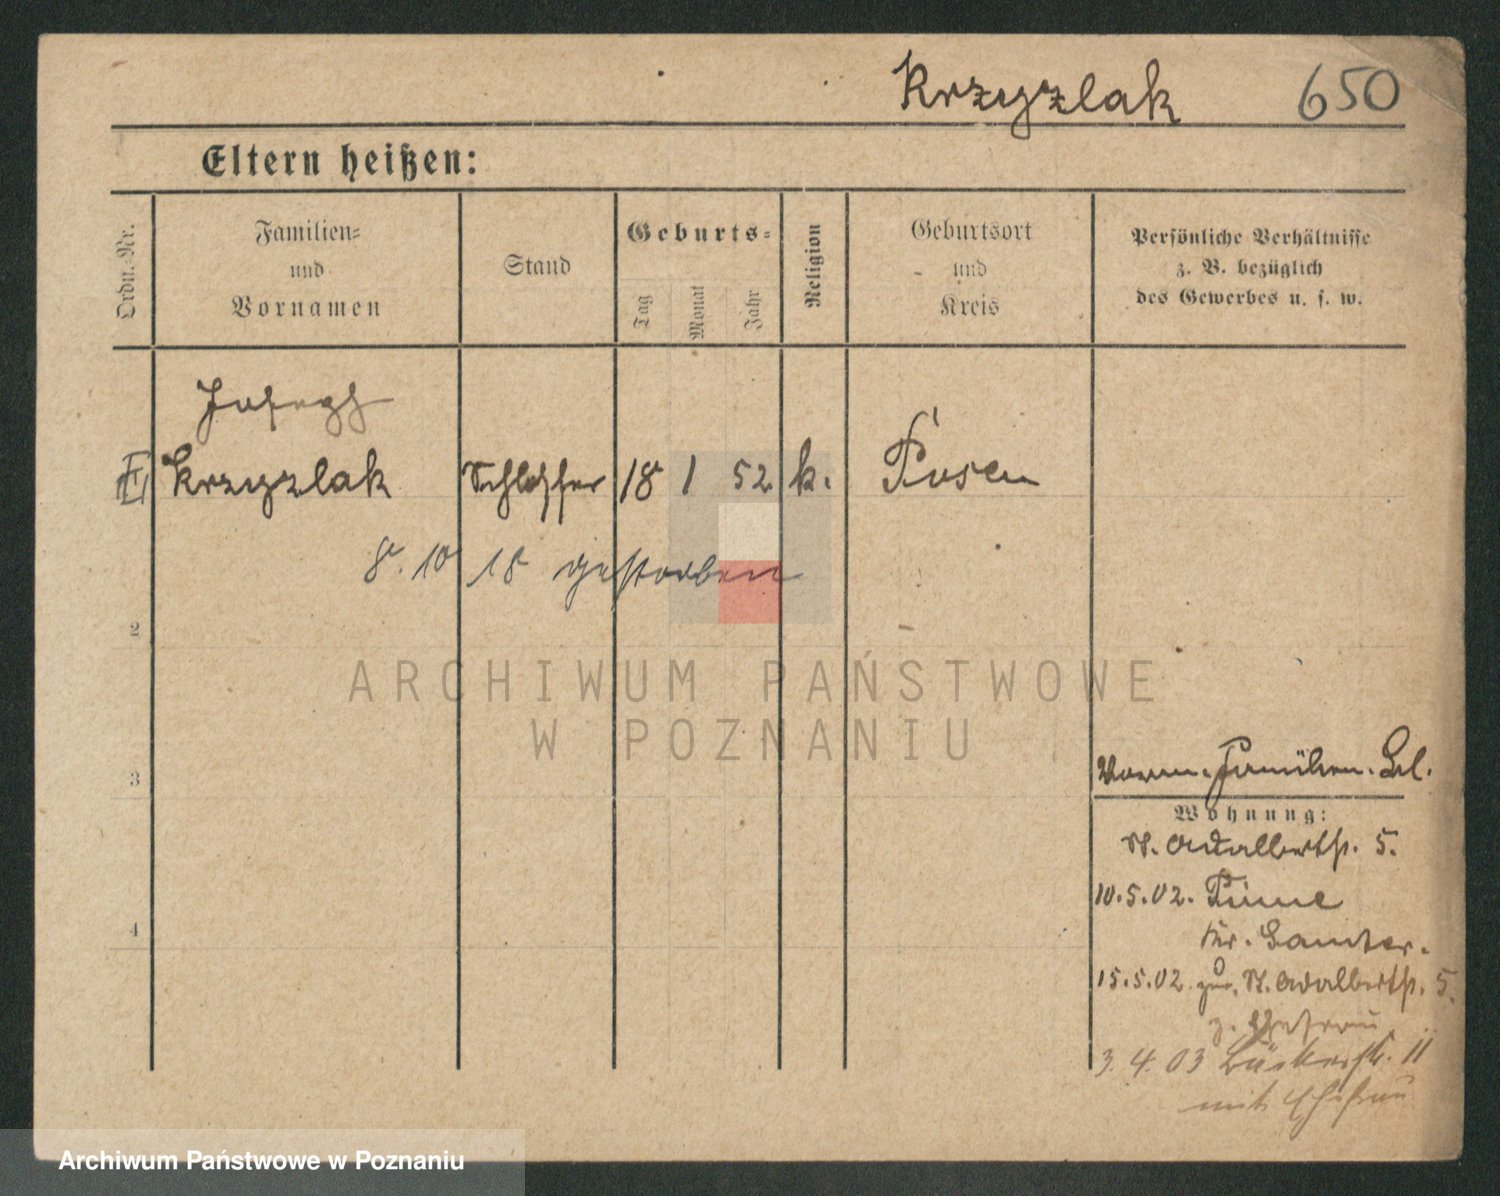 Krzyzlak 650
Eltern heißen:
Ordn.-Nr.
Familien-
und
Vornamen
Stand
Geburts-
Tag
Monat
Jahr
Religion
Geburtsort
und
Kreis
Persönliche Verhältnisse
z. B. bezüglich
des Gewerbes u. s. w.
Joseph
Krzyzlak Schlosser 18 1 52 k. Posen
8. 10 18 gestorben
2
3
4
ARCHIWUM PAŃSTWOWE
W POZNANIU
Familien. Bl.
Wohnung:
St. Adalbertstr. 5.
10.5.02. Pinne
Kr. Samter.
15.5.02 zur. St. Adalbertstr. 5.
z. Ehefrau
3. 4. 03 Bäckerstr. 11
mit Ehefrau
Archiwum Państwowe w Poznaniu